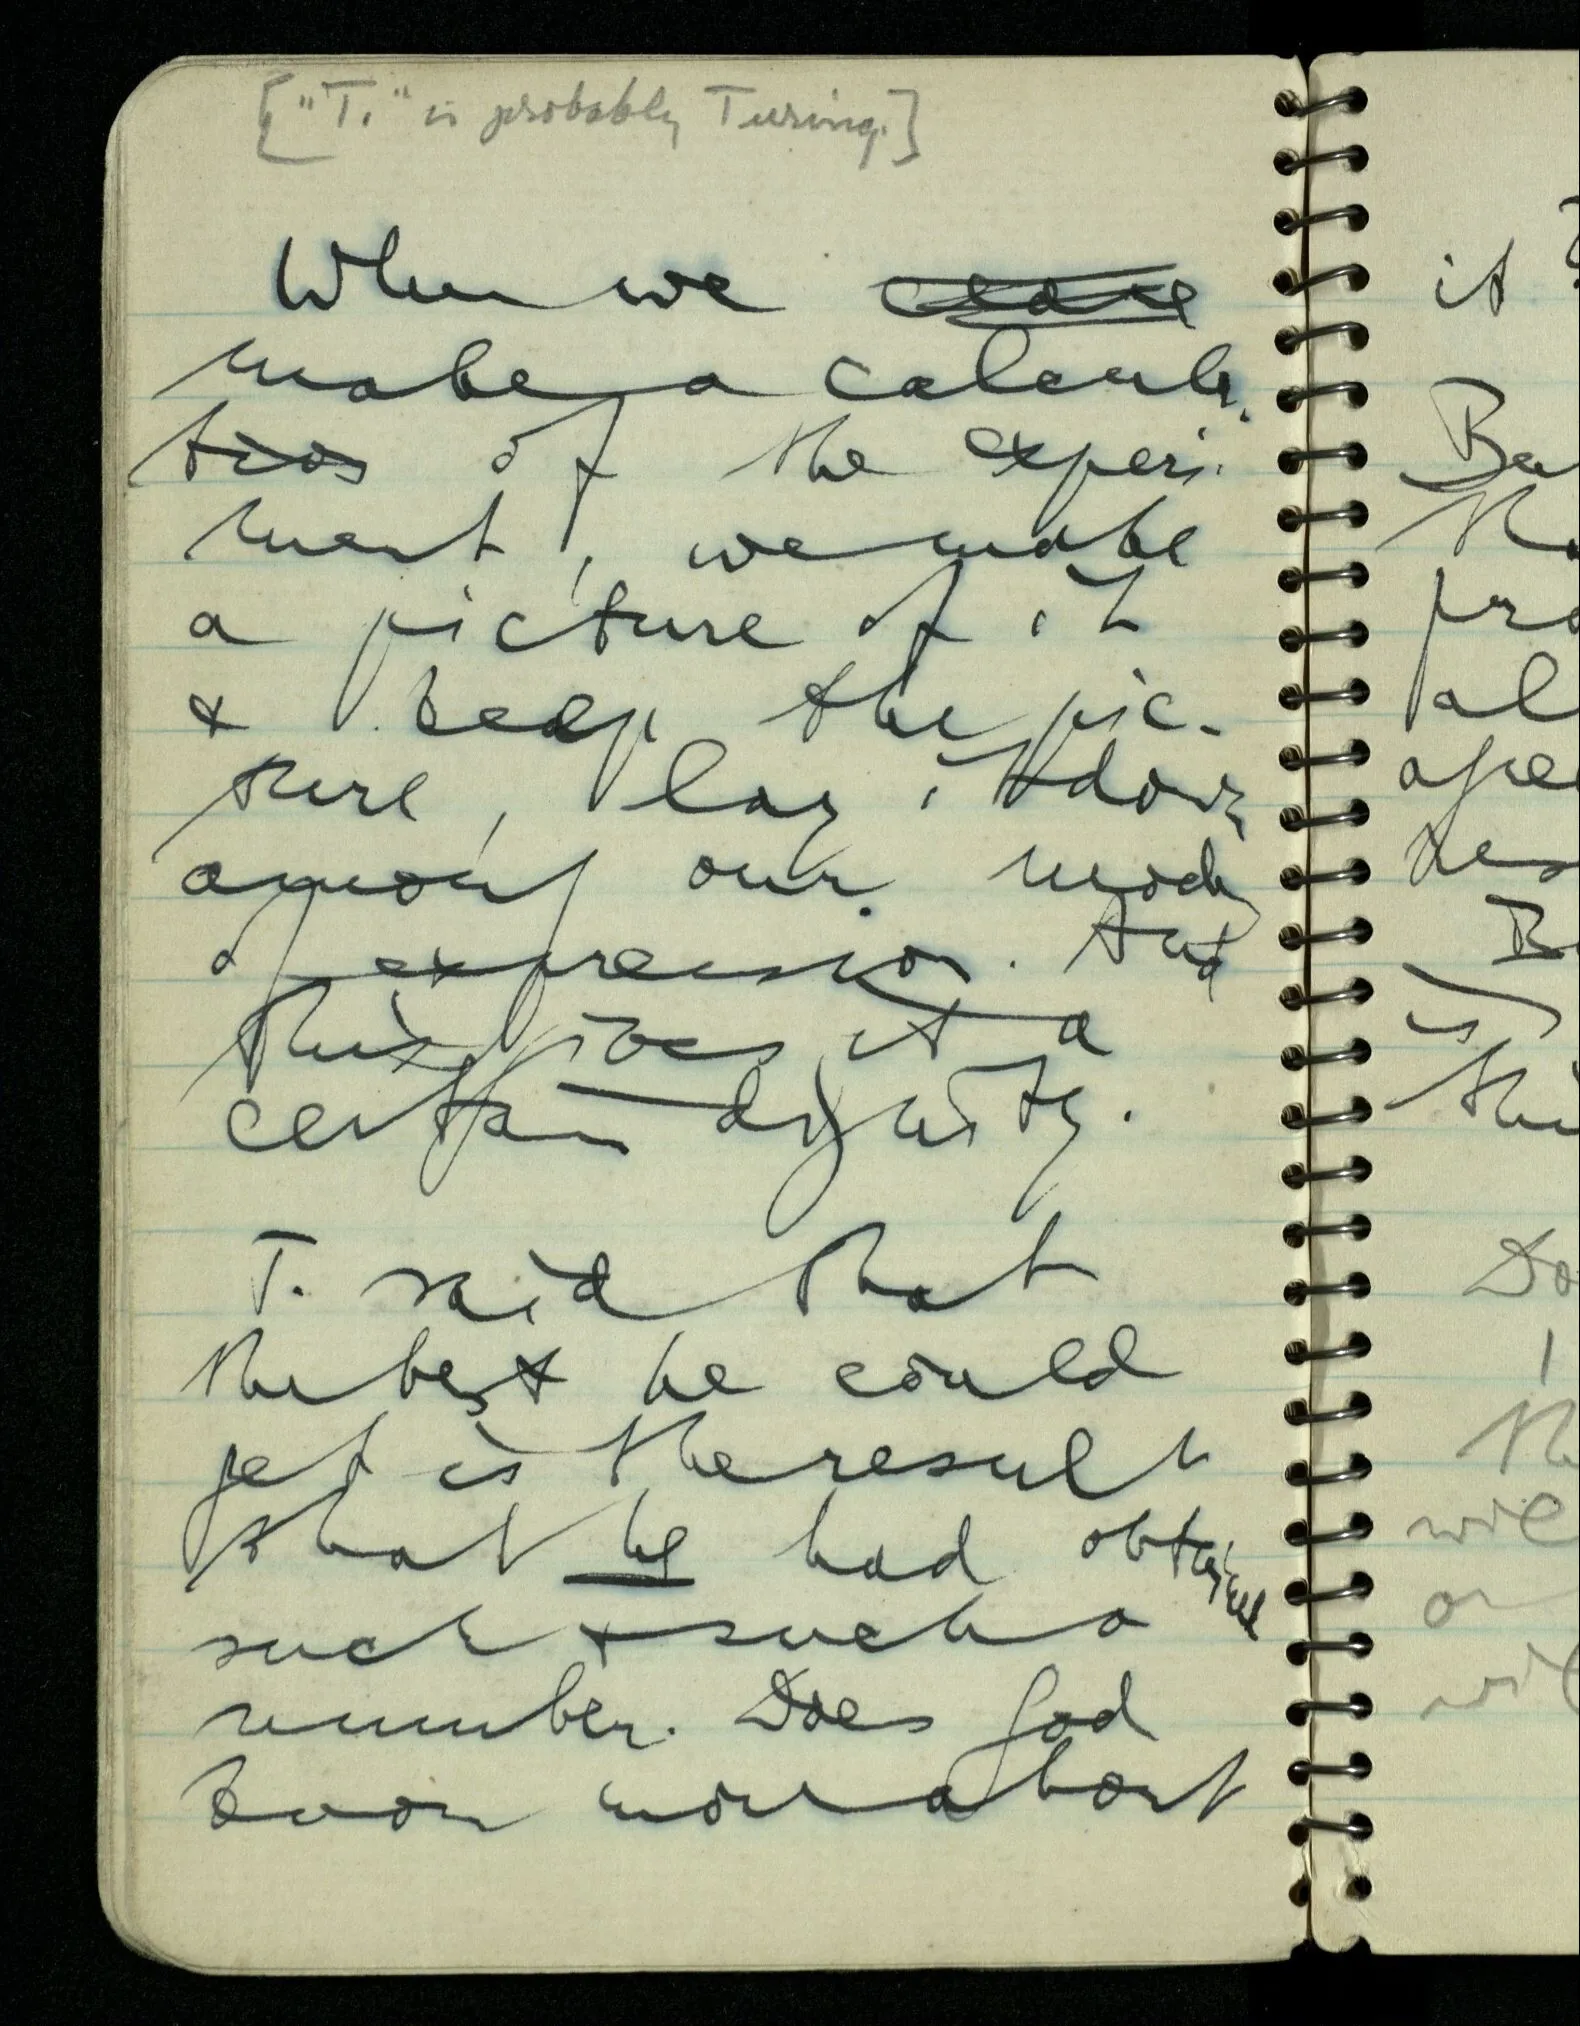 ["T." is probably Turing.]
When we
make a calcula-
tion of the experi-
ment, we make
a picture of it
& keep the pic-
ture, lay it down
amongst our modes
of expression. And
this gives it a
certain dignity.
T. said that
the best he could
get is the result
that he had obtained
such & such a
number. Does God
know more about
it